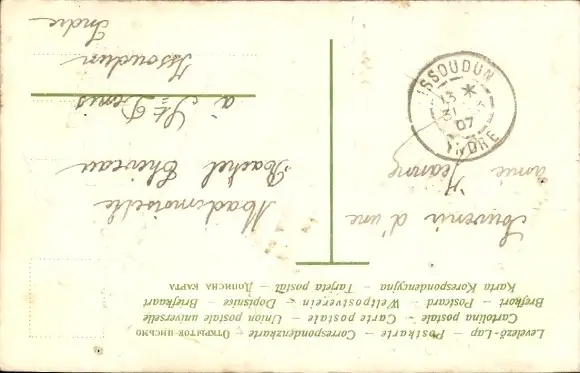 Levelező-Lap – Postkarte – Correspondenzkarte – Открытое-письмо
Cartolina postale – Carte postale – Union postale universelle
Brefkort – Postcard – Weltpostverein – Dopisnice – Briefkaart
Karta Korespondencyjna – Tarjeta postal – Дописна карта
Souvenir d'une
amie
Jeanne
Mademoiselle
Rachel
à St Denis
Issoudun
Indre
ISSOUDUN
13
07
INDRE